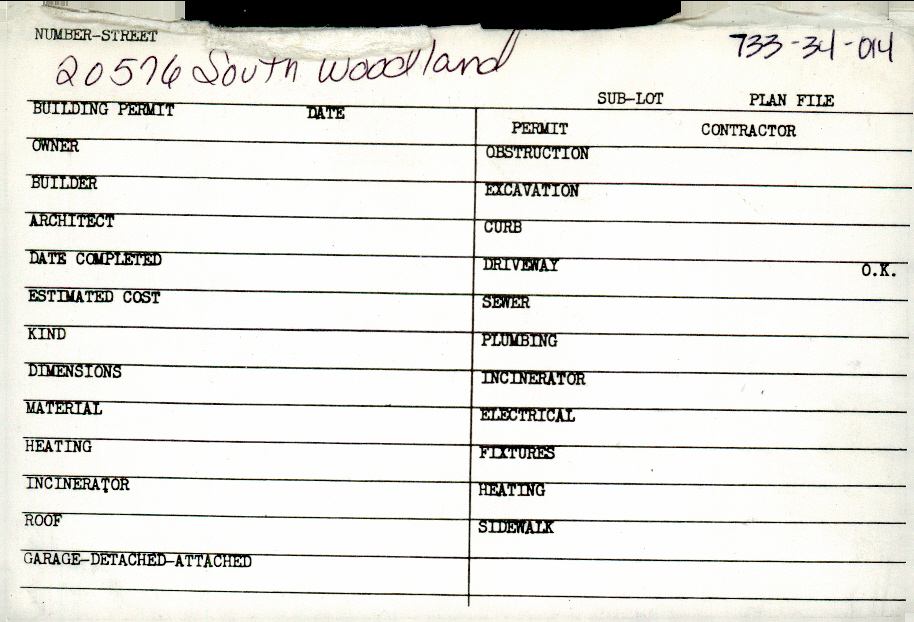 NUMBER-STREET
20576 South Woodland
733-34-014
SUB-LOT PLAN FILE
BUILDING PERMIT DATE
PERMIT CONTRACTOR
OWNER
OBSTRUCTION
BUILDER
EXCAVATION
ARCHITECT
CURB
DATE COMPLETED
DRIVEWAY O.K.
ESTIMATED COST
SEWER
KIND
PLUMBING
DIMENSIONS
INCINERATOR
MATERIAL
ELECTRICAL
HEATING
FIXTURES
INCINERATOR
HEATING
ROOF
SIDEWALK
GARAGE-DETACHED-ATTACHED